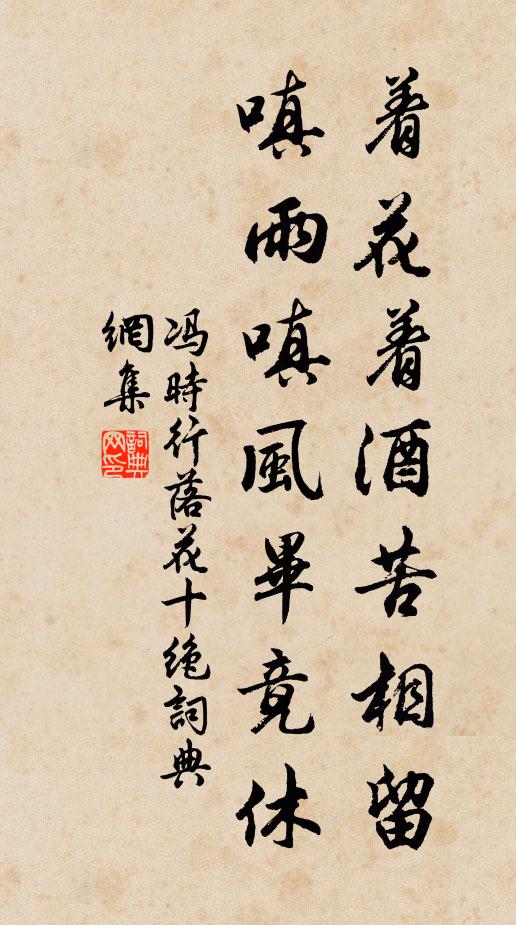 着花着酒苦相留
嗔雨嗔風畢竟休
冯時行落花十絶詞典
網集
詞典網印